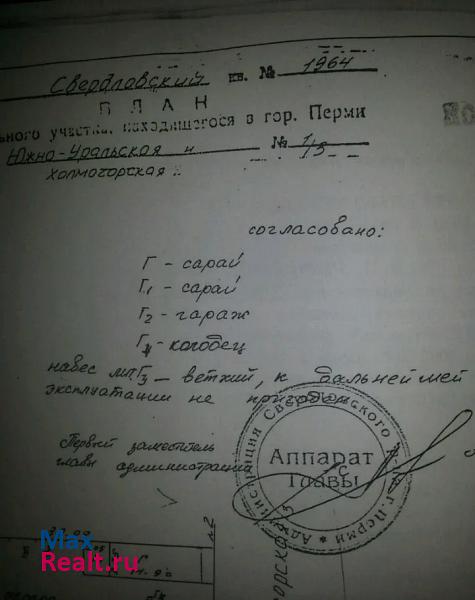 Свердловский кв. № 1964
ПЛАН
ьного участка, находящегося в гор. Перми
Южно-Уральская и № 1/3
Холмогорская
согласовано:
Г - сарай
Г1 - сарай
Г2 - гараж
Г4 - колодец
навес лит Г3 - ветхий, к дальнейшей
эксплуатации не пригоден
Первый заместитель
главы администрации
Администрация Свердловского г. Перми
Аппарат
Главы
Max
Realt.ru